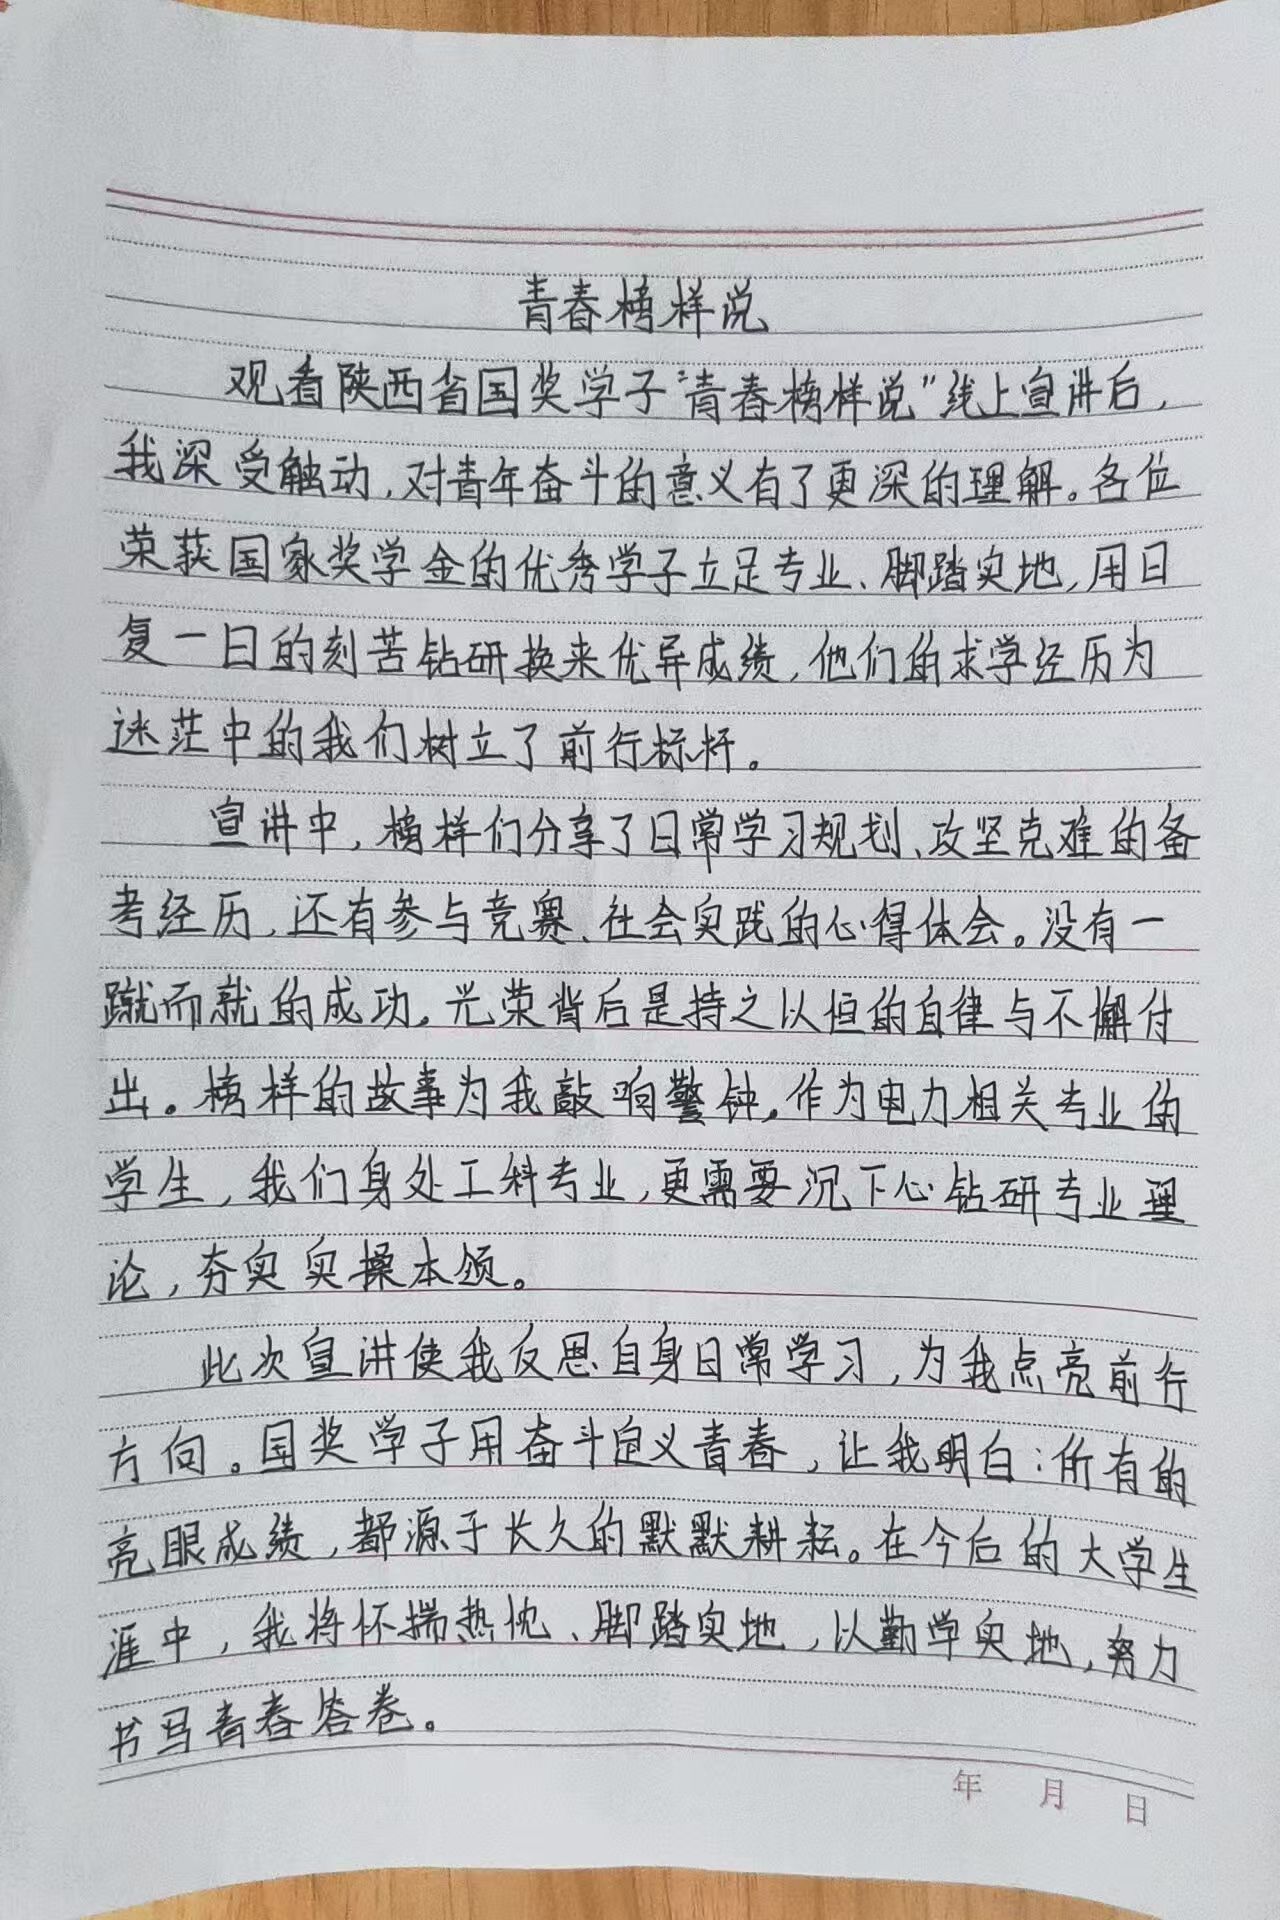 青春榜样说
观看陕西省国奖学子“青春榜样说”线上宣讲后,
我深受触动,对青年奋斗的意义有了更深的理解。各位
荣获国家奖学金的优秀学子立足专业、脚踏实地,用日
复一日的刻苦钻研换来优异成绩,他们的求学经历为
迷茫中的我们树立了前行标杆。
宣讲中,榜样们分享了日常学习规划、攻坚克难的备
考经历,还有参与竞赛、社会实践的心得体会。没有一
蹴而就的成功。光荣背后是持之以恒的自律与不懈付
出。榜样的故事为我敲响警钟。作为电力相关专业的
学生,我们身处工科专业,更需要沉下心钻研专业理
论,夯实实操本领。
此次宣讲使我反思自身日常学习,为我点亮前行
方向。国奖学子用奋斗定义青春,让我明白:所有的
亮眼成绩,都源于长久的默默耕耘。在今后的大学生
涯中,我将怀揣热忱、脚踏实地,以勤学实地,努力
书写青春答卷。
年 月 日